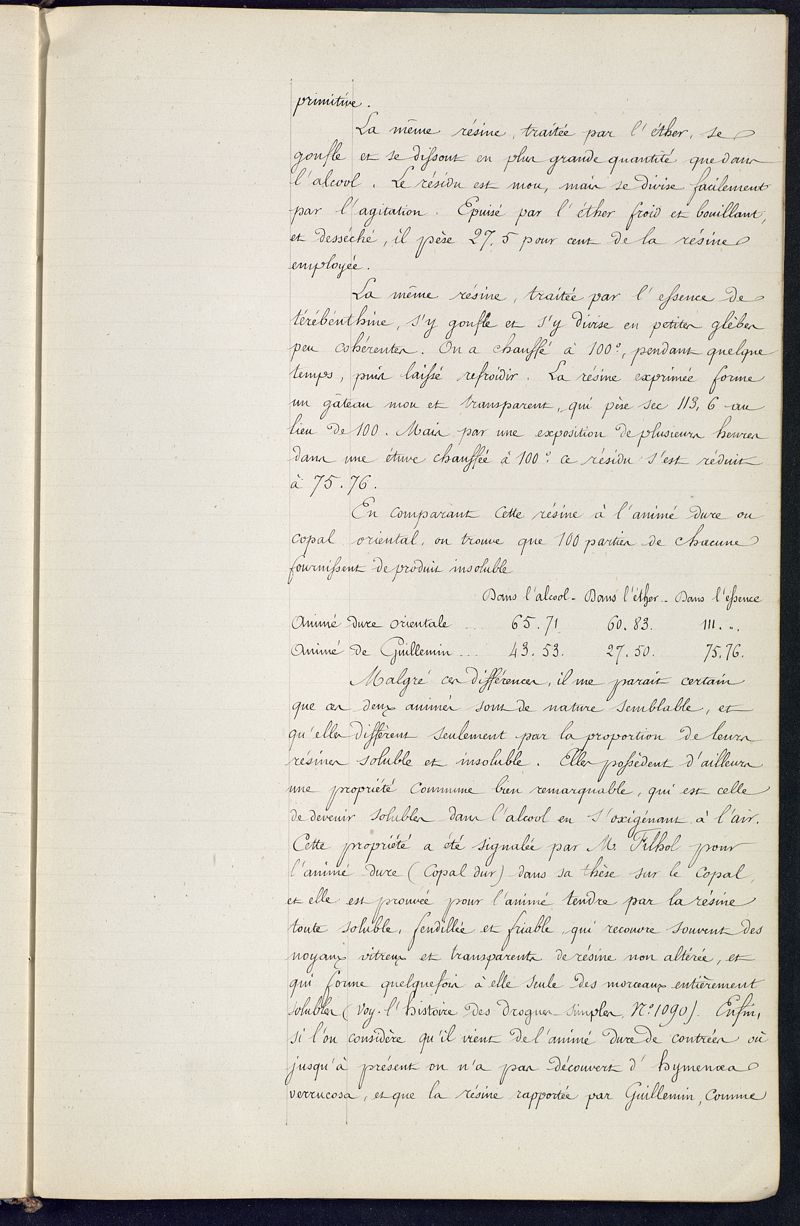 primitive.
La même résine, traitée par l'éther, se
gonfle et se dissout en plus grande quantité que dans
l'alcool. Le résidu est mou, mais se divise facilement
par l'agitation. Epuisé par l'éther froid et bouillant,
et desséché, il pèse 27,5 pour cent de la résine
employée.
La même résine, traitée par l'essence de
térébenthine, s'y gonfle et s'y divise en petites glèbes
peu cohérentes. On a chauffé à 100°, pendant quelque
temps, puis laissé refroidir. La résine exprimée forme
un gâteau mou et transparent, qui pèse sec 113,6 au
lieu de 100. Mais par une exposition de plusieurs heures
dans une étuve chauffée à 100° ce résidu s'est réduit
à 75.76.
En comparant cette résine à l'animé dure ou
copal oriental, on trouve que 100 parties de chacune
fournissent de produit insoluble
Dans l'alcool - Dans l'éther - Dans l'essence
Animé dure orientale ... 65.71 60.83. 111. ".
Animé de Guillemin ... 43.53. 27.50. 75.76.
Malgré ces différences, il me parait certain
que ces deux animés sont de nature semblable, et
qu'elles diffèrent seulement par la proportion de leurs
résines soluble et insoluble. Elles possèdent d'ailleurs
une propriété commune bien remarquable, qui est celle
de devenir solubles dans l'alcool en s'oxigénant à l'air.
Cette propriété a été signalée par M. Filhol pour
l'animé dure (Copal dur) dans sa thèse sur le Copal,
et elle est prouvée pour l'animé tendre par la résine
toute soluble, fendillée et friable, qui recouvre souvent des
noyaux vitreux et transparents de résine non altérée, et
qui forme quelquefois à elle seule des morceaux entièrement
solubles (Voy. l'histoire des drogues simples, N° 1090). Enfin,
si l'on considère qu'il vient de l'animé dure de contrées où
jusqu'à présent on n'a pas découvert d'hymenœa
verrucosa, et que la résine rapportée par Guillemin, comme